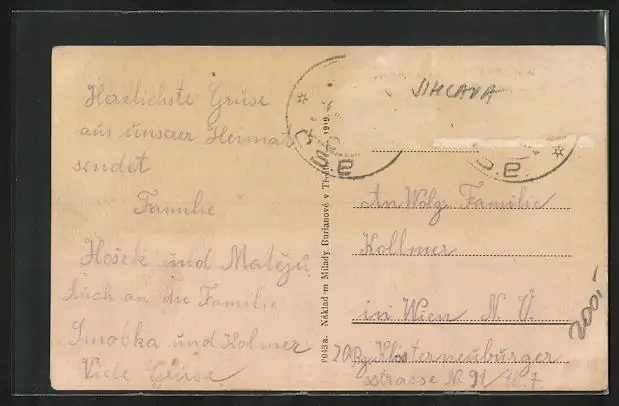 Herzlichste Grüse
aus unserer Heimat
sendet
Familie
Hošek und Matěju
Auch an die Familie
und Kolmer
Viele Grüse
9043 a. Nákladem Milady Burianové v 1919.
JIHLAVA
An Wolg. Familie
Kollmer
in Wien N. Ö.
Klosterneuburger
sstrasse No 91
200,-